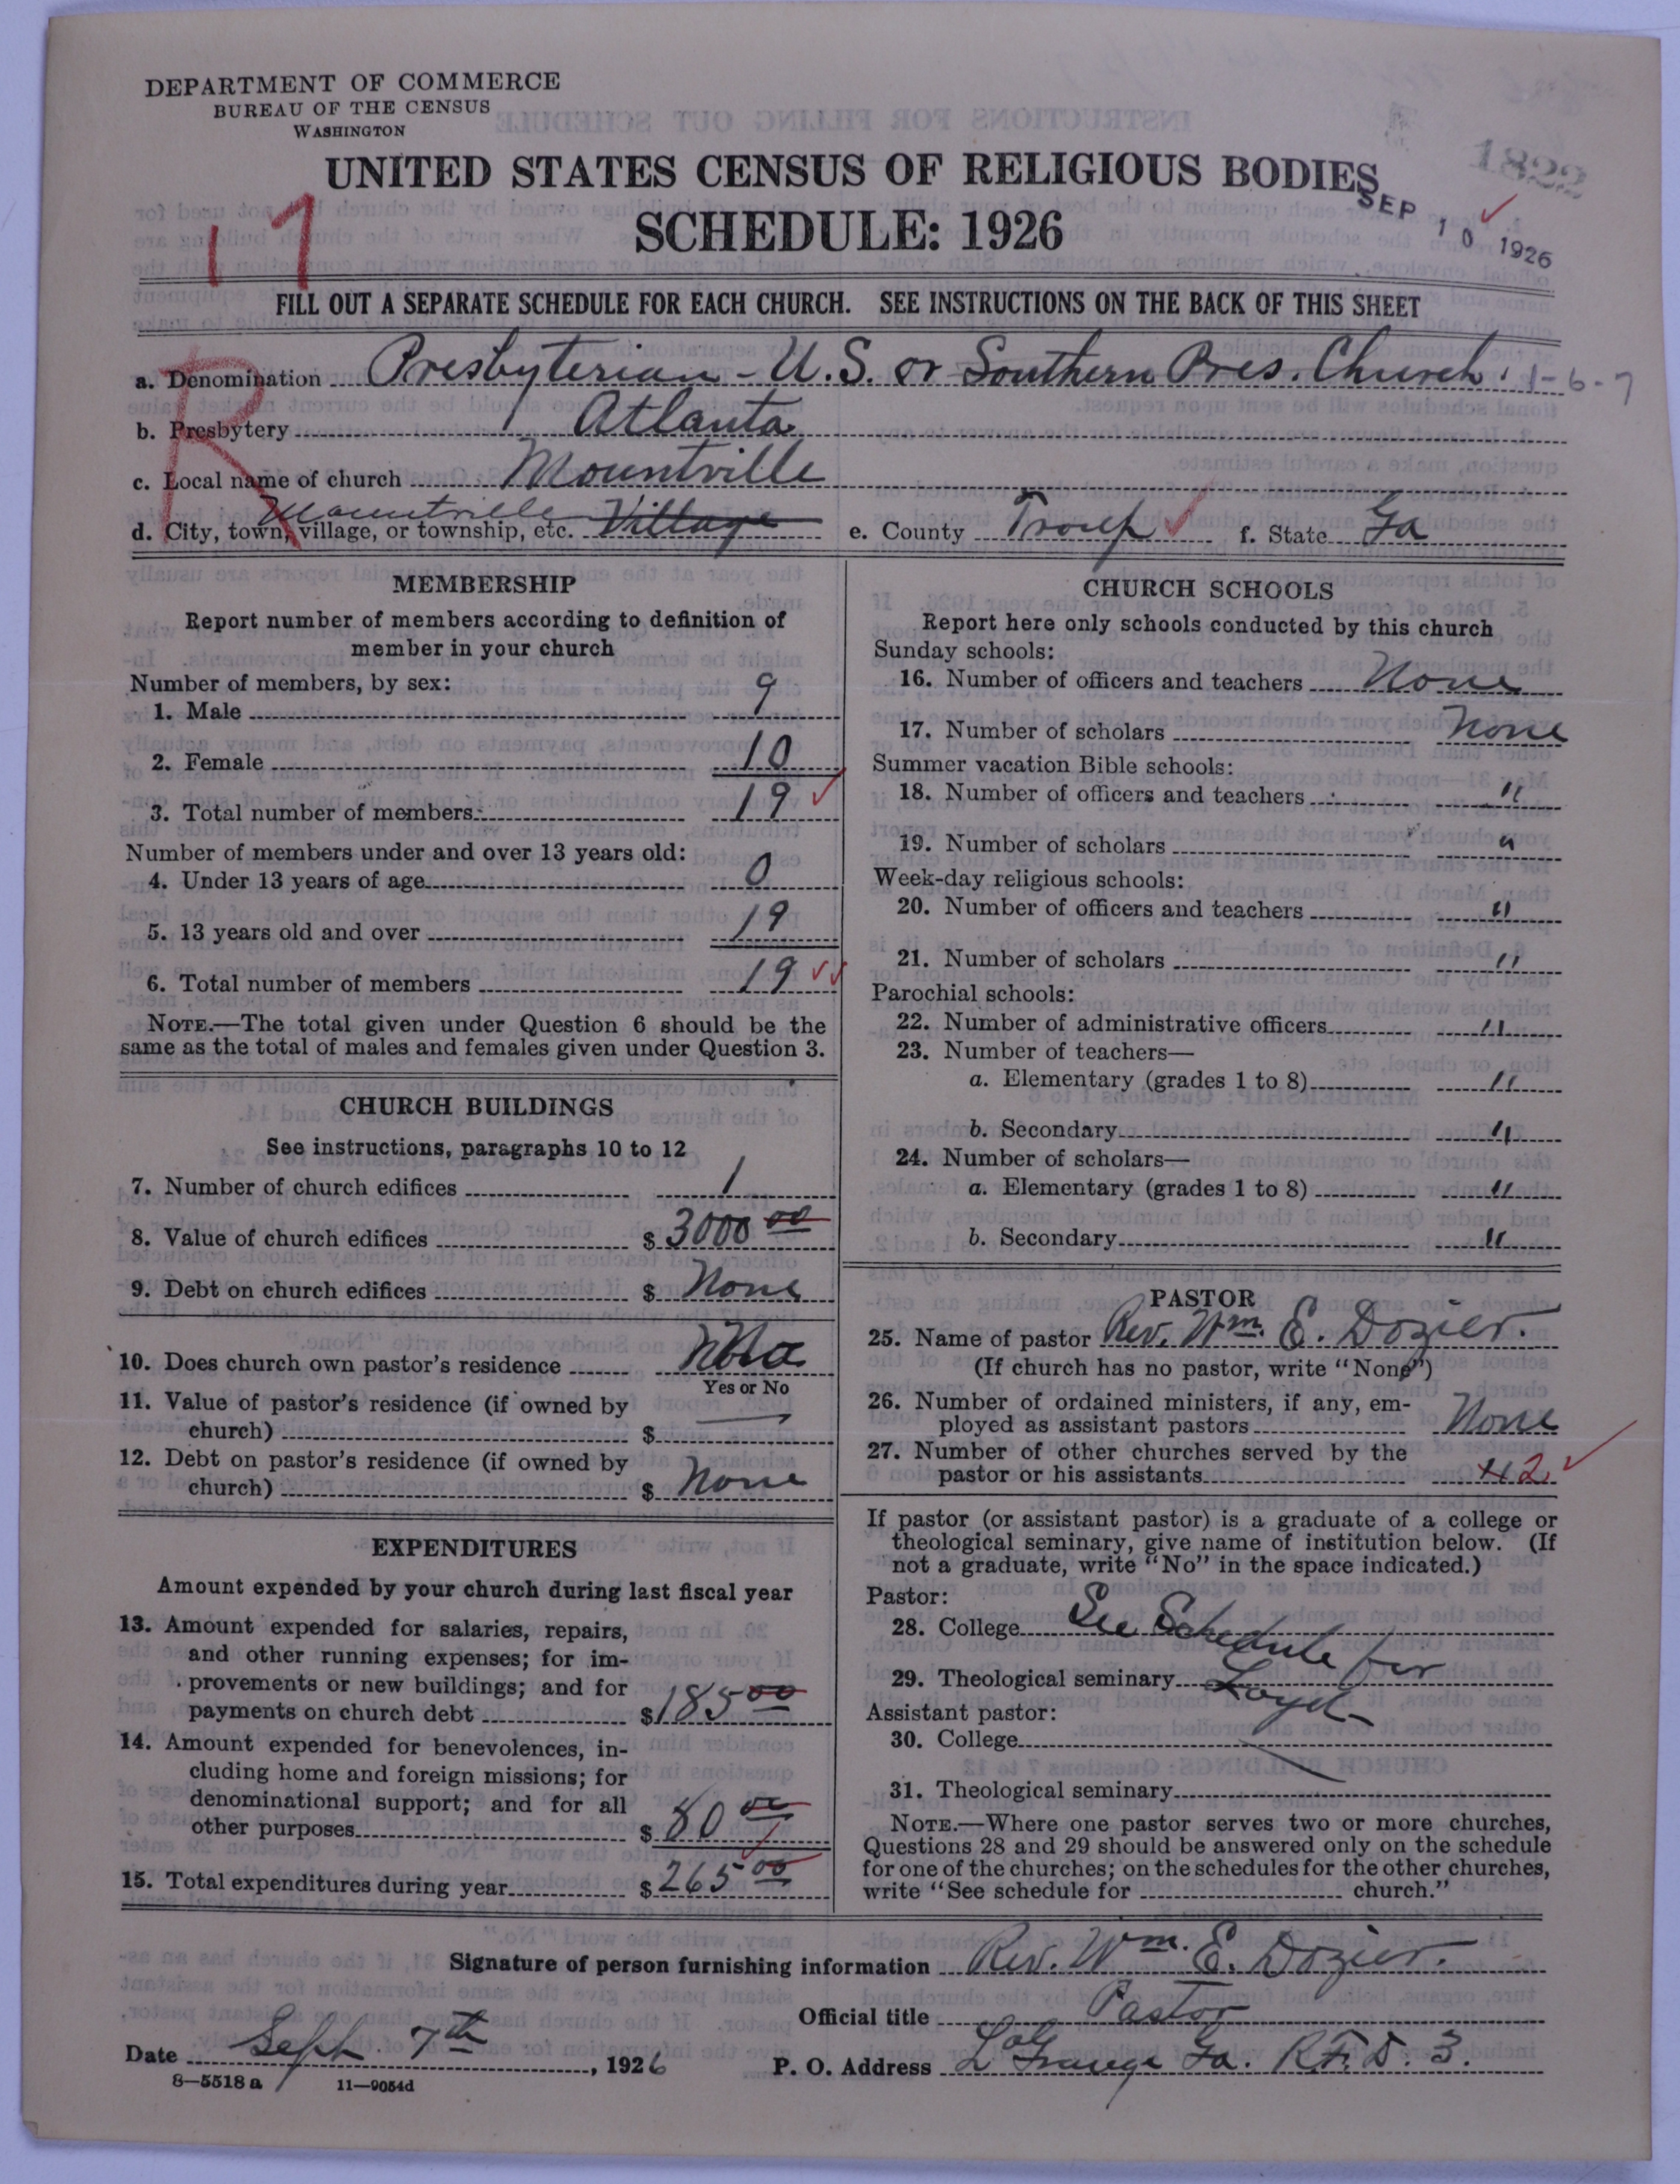 DEPARTMENT OF COMMERCE
BUREAU OF THE CENSUS
WASHINGTON
UNITED STATES CENSUS OF RELIGIOUS BODIES
SCHEDULE: 1926
1822
SEP 10 1926
17
FILL OUT A SEPARATE SCHEDULE FOR EACH CHURCH. SEE INSTRUCTIONS ON THE BACK OF THIS SHEET
R
a. Denomination Presbyterian - U.S. or Southern Pres. Church. 1-6-7
b. Presbytery Atlanta
c. Local name of church Mountville
d. City, town, village, or township, etc. Mountville Village e. County Troup f. State Ga
MEMBERSHIP
Report number of members according to definition of
member in your church
Number of members, by sex:
1. Male 9
2. Female 10
3. Total number of members 19
Number of members under and over 13 years old:
4. Under 13 years of age 0
5. 13 years old and over 19
6. Total number of members 19
NOTE.—The total given under Question 6 should be the
same as the total of males and females given under Question 3.
CHURCH BUILDINGS
See instructions, paragraphs 10 to 12
7. Number of church edifices 1
8. Value of church edifices $ 3000 00
9. Debt on church edifices $ None
10. Does church own pastor's residence No
Yes or No
11. Value of pastor's residence (if owned by
church) $ —
12. Debt on pastor's residence (if owned by
church) $ None
EXPENDITURES
Amount expended by your church during last fiscal year
13. Amount expended for salaries, repairs,
and other running expenses; for im-
provements or new buildings; and for
payments on church debt $ 185 00
14. Amount expended for benevolences, in-
cluding home and foreign missions; for
denominational support; and for all
other purposes $ 80 00
15. Total expenditures during year $ 265 00
CHURCH SCHOOLS
Report here only schools conducted by this church
Sunday schools:
16. Number of officers and teachers None
17. Number of scholars None
Summer vacation Bible schools:
18. Number of officers and teachers "
19. Number of scholars "
Week-day religious schools:
20. Number of officers and teachers "
21. Number of scholars "
Parochial schools:
22. Number of administrative officers "
23. Number of teachers—
a. Elementary (grades 1 to 8) "
b. Secondary "
24. Number of scholars—
a. Elementary (grades 1 to 8) "
b. Secondary "
PASTOR
25. Name of pastor Rev. Wm. E. Dozier.
(If church has no pastor, write "None")
26. Number of ordained ministers, if any, em-
ployed as assistant pastors None
27. Number of other churches served by the
pastor or his assistants 2
If pastor (or assistant pastor) is a graduate of a college or
theological seminary, give name of institution below. (If
not a graduate, write "No" in the space indicated.)
Pastor:
28. College See Schedule for
29. Theological seminary Loyd
Assistant pastor:
30. College
31. Theological seminary
NOTE.—Where one pastor serves two or more churches,
Questions 28 and 29 should be answered only on the schedule
for one of the churches; on the schedules for the other churches,
write "See schedule for church."
Signature of person furnishing information Rev. Wm. E. Dozier.
Official title Pastor
Date Seph 7th, 1926 P. O. Address LaGrange Ga. R.F.D. 3.
8—5518 a 11—9054d